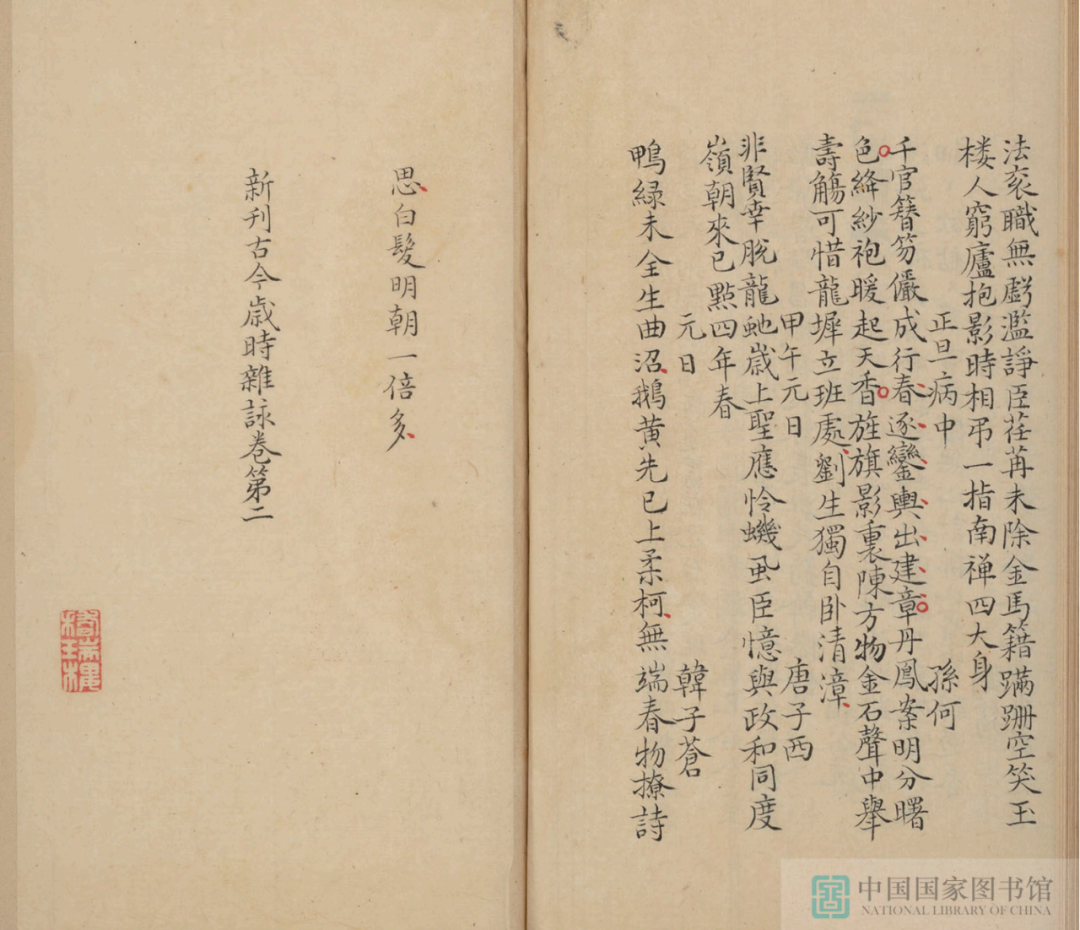 法衮職無虧濫諍臣荏苒未除金馬籍蹣跚空笑玉
楼人窮廬抱影時相弔一指南禅四大身
正旦病中 孫何
千官簪笏儼成行春逐鑾輿出建章丹鳳案明分曙
色絳紗袍暖起天香旌旗影裏陳方物金石聲中舉
壽觴可惜龍墀立班處劉生獨自卧清漳
甲午元日 唐子西
非賢幸脫龍虵歳上聖應怜蟣虱臣憶與政和同度
嶺朝來已點四年春
元日 韓子蒼
鴨緑未全生曲沼鵝黄先已上柔柯無端春物撩詩
思白髮明朝一倍多
新刊古今歳時雜詠卷第二
中国国家图书馆
NATIONAL LIBRARY OF CHINA